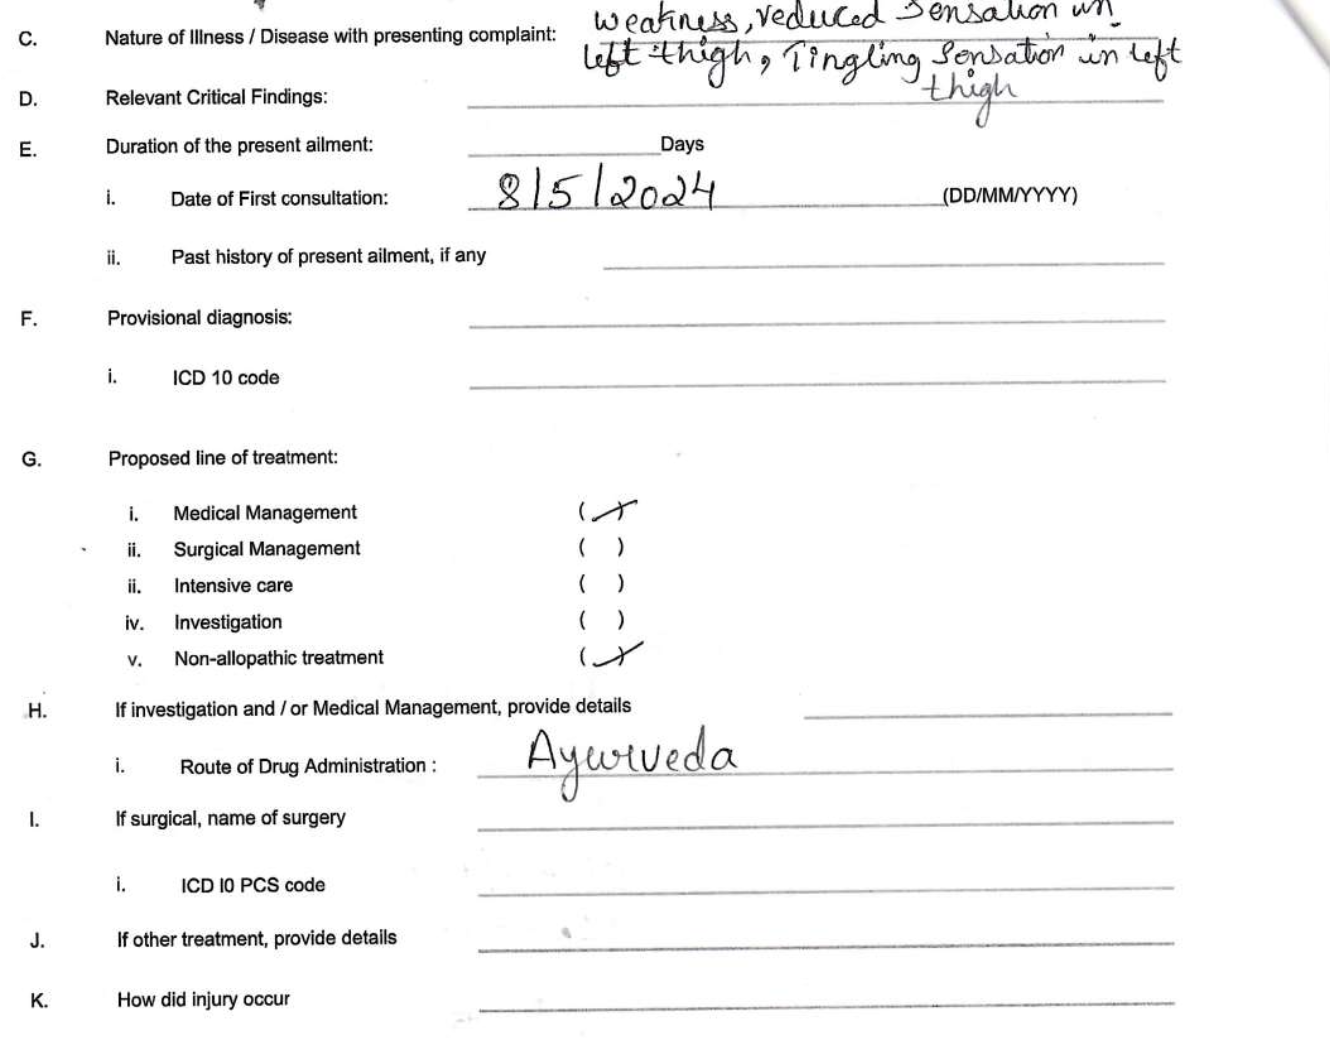 weakness, reduced Sensation in
C. Nature of Illness / Disease with presenting complaint:
left thigh, Tingling Sensation in left
thigh
D. Relevant Critical Findings:
E. Duration of the present ailment: Days
i. Date of First consultation: 8/5/2024 (DD/MM/YYYY)
ii. Past history of present ailment, if any
F. Provisional diagnosis:
i. ICD 10 code
G. Proposed line of treatment:
i. Medical Management (
ii. Surgical Management ( )
ii. Intensive care ( )
iv. Investigation ( )
v. Non-allopathic treatment (
H. If investigation and / or Medical Management, provide details
i. Route of Drug Administration : Ayurveda
I. If surgical, name of surgery
i. ICD I0 PCS code
J. If other treatment, provide details
K. How did injury occur